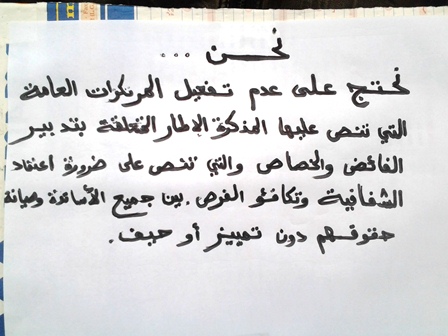 نحن ...
نحتج على عدم تفعيل المرتكزات العامة
التي تنص عليها المذكرة الإطار المتعلقة بتدبير
الفائض والخصاص والتي تنص على ضرورة اعتماد
الشفافية وتكافؤ الفرص بين جميع الأساتذة وصيانة
حقوقهم دون تمييز أو حيف.